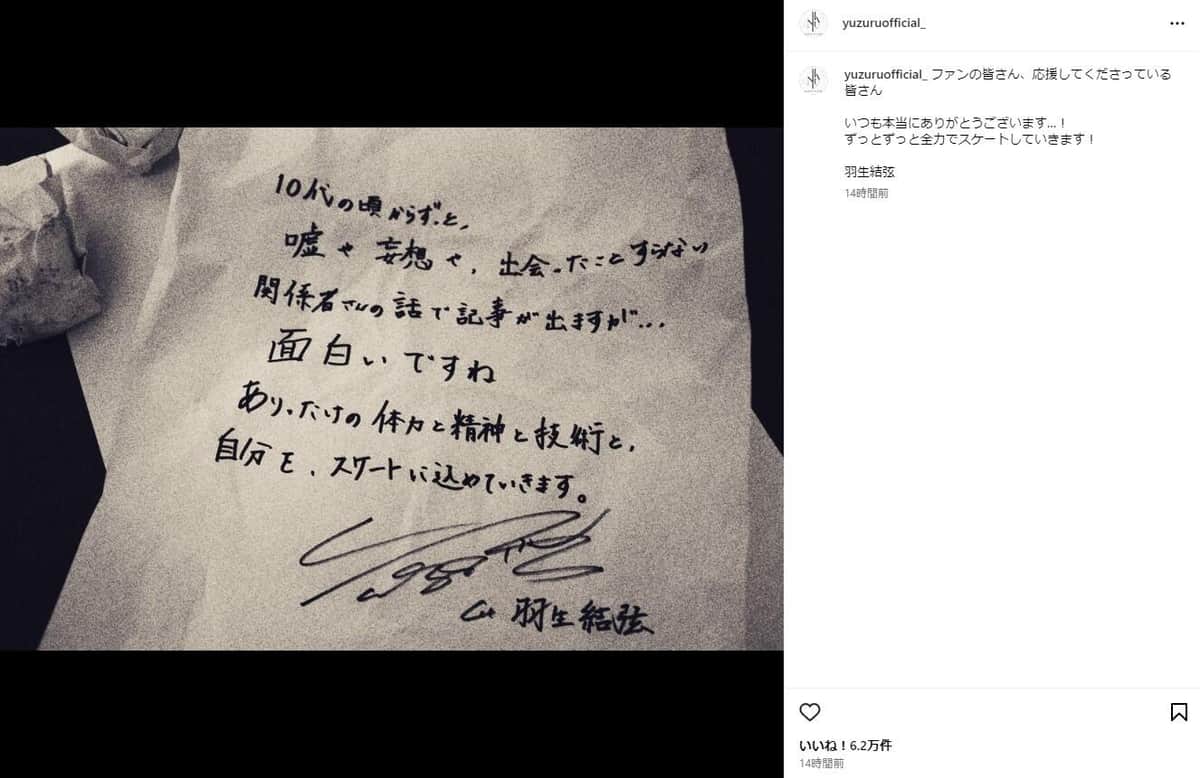 10代の頃からずっと、
嘘や妄想や、出会ったことすらない
関係者さんの話で記事が出ますが…
面白いですね
ありったけの体力と精神と技術と、
自分を、スケートに込めていきます。
羽生結弦
yuzuruofficial_
yuzuruofficial_ ファンの皆さん、応援してくださっている
皆さん
いつも本当にありがとうございます…！
ずっとずっと全力でスケートしていきます！
羽生結弦
14時間前
いいね！6.2万件
14時間前